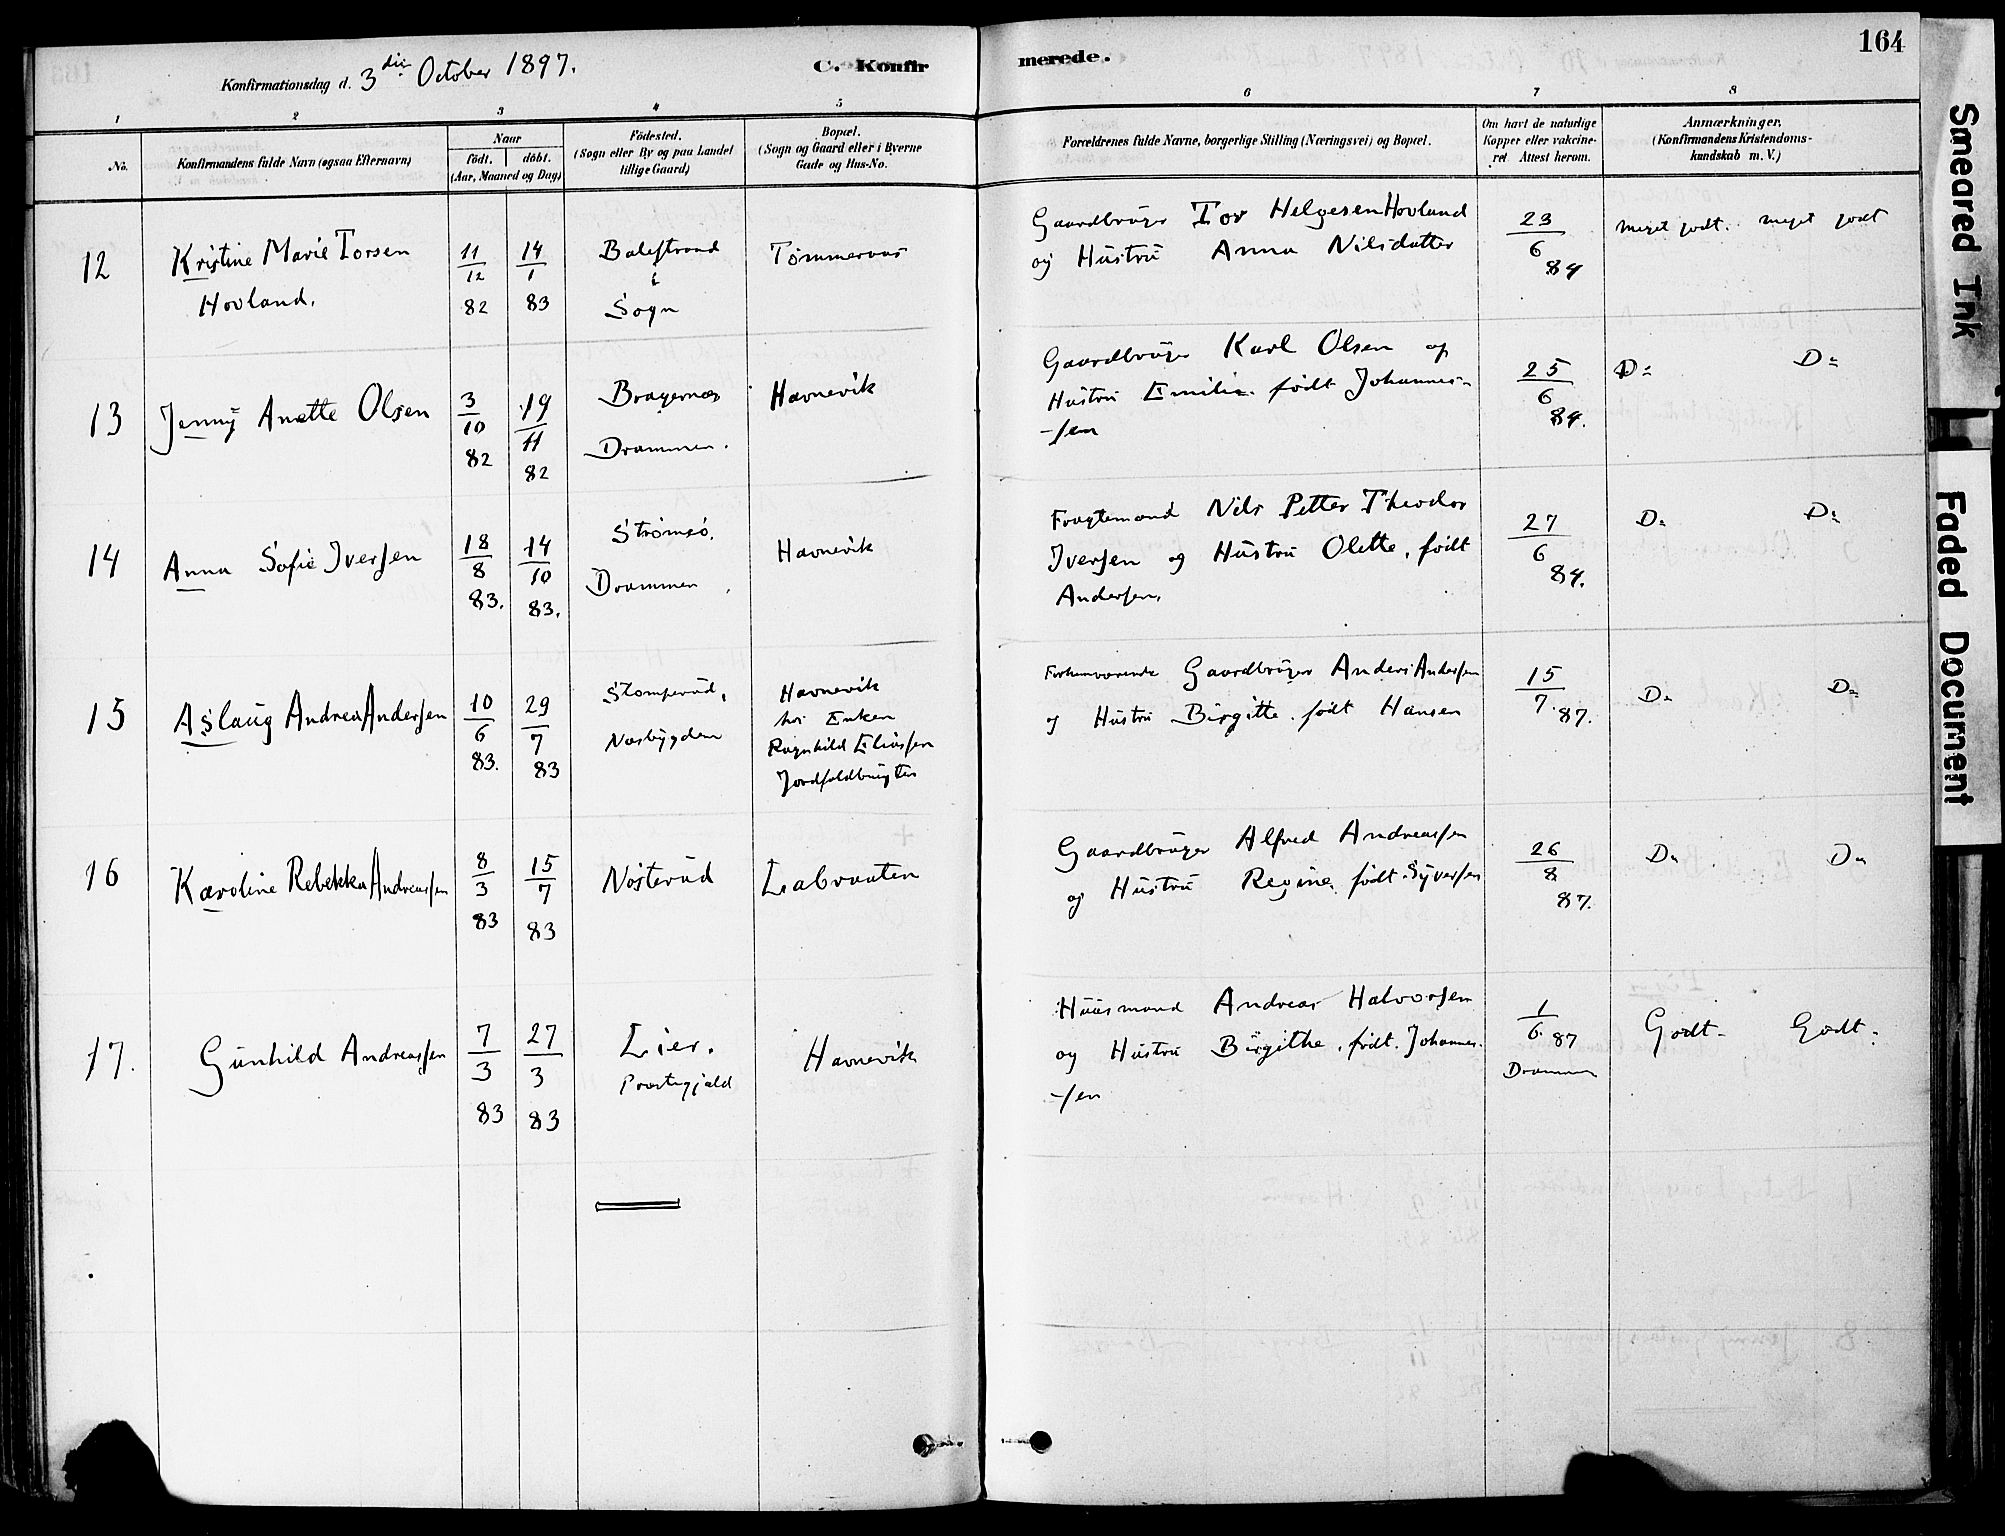 164
Konfirmationsdag d. 3die October 1897.
C. Konfirmerede.
1 2 3 4 5 6 7 8
No.
Konfirmandens fulde Navn (ogsaa Efternavn)
Naar
födt. döbt.
(Aar, Maaned og Dag)
Födested.
(Sogn eller By og paa Landet
tillige Gaard)
Bopæl.
(Sogn og Gaard eller i Byerne
Gade og Hus-No.
Forældrenes fulde Navne, borgerlige Stilling (Næringsvei) og Bopæl.
Om havt de naturlige
Kopper eller vakcine-
ret Attest herom.
Anmærkninger.
(Konfirmandens Kristendoms-
kundskab m. V.)
12
Kristine Marie Torsen
Hovland.
11/12 82
14/1 83
Balestrand
i
Sogn
Tømmeraas
Gaardbruger Tor Helgesen Hovland
og Hustru Anna Nilsdatter
23/6 84
meget godt. meget godt
13
Jenny Anette Olsen
3/10 82
19/11 82
Bragernæs
Drammen.
Havnevik
Gaardbruger Karl Olsen og
Hustru Emilie født Johannes-
-sen
25/6 84.
Do Do
14
Anna Sofie Iversen
18/8 83.
14/10 83.
Strømsø.
Drammen
Havnevik
Fragtemand Nils Petter Theodor
Iversen og Hustru Olette, født
Andersen.
27/6 84.
Do Do
15
Aslaug Andrea Andersen
10/6 83.
29/7 83
Stomperud,
Næsbygden
Havnevik
hos Enken
Ragnhild Eliassen
Forhenværende Gaardbruger Anders Andersen
og Hustru Birgitte født Hansen
15/7 87.
Do Do
16
Karoline Rebekka Andreassen
8/3 83
15/7 83
Nøsterud
Labraaten
Gaardbruger Alfred Andreassen
og Hustru Regine født Syversen
26/8 87.
Do Do
17.
Gunhild Andreassen
7/3 83
27/3 83
Lier.
Præstegjæld
Havnevik
Huusmand Andreas Halvorsen
og Hustru Birgithe, født Johannes-
-sen
1/6 87
Drammen
Godt- Godt.
Smeared Ink
Faded Document